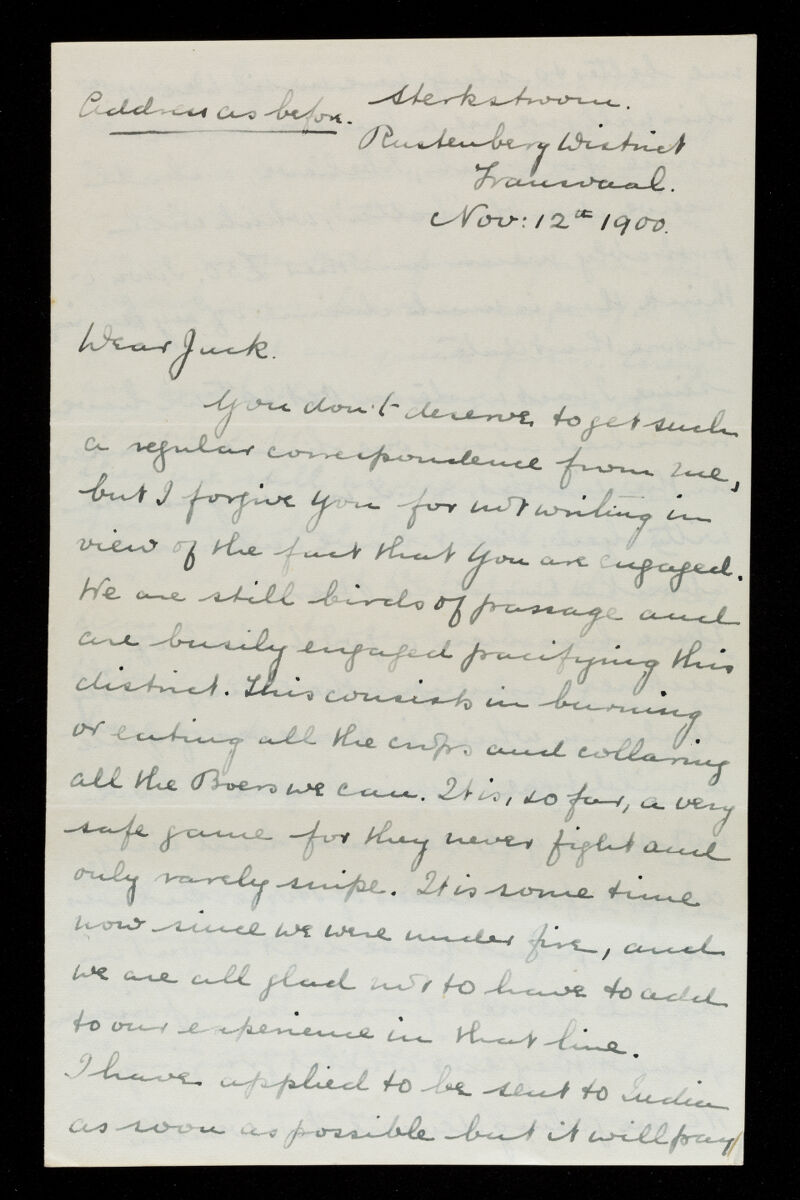 Address as before.
Sterkstroom.
Rustenberg District
Transvaal.
Nov: 12th 1900.
Dear Jack.
You don't deserve to get such
a regular correspondence from me,
but I forgive you for not writing in
view of the fact that you are engaged.
We are still birds of passage and
are busily engaged pacifying this
district. This consists in burning
or eating all the crops and collaring
all the Boers we can. It is, so far, a very
safe game for they never fight and
only rarely snipe. It is some time
now since we were under fire, and
we are all glad not to have to add
to our experience in that line.
I have applied to be sent to India
as soon as possible but it will pay